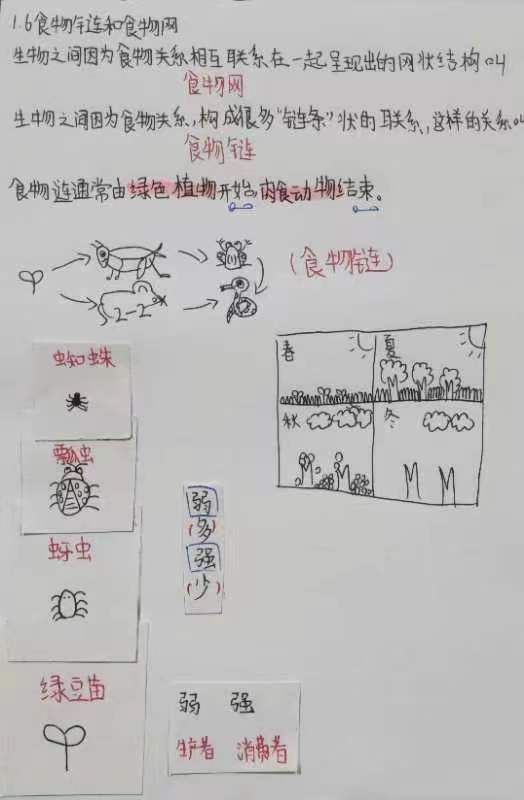 1.6食物链和食物网
生物之间因为食物关系相互联系在一起呈现出的网状结构叫
食物网
生物之间因为食物关系,构成很多“链条”状的联系,这样的关系叫
食物链
食物链通常由绿色植物开始,肉食动物结束。
(食物链)
春 夏
秋 冬
蜘蛛
瓢虫
蚜虫
绿豆苗
弱
(多)
强
(少)
弱 强
生产者 消费者